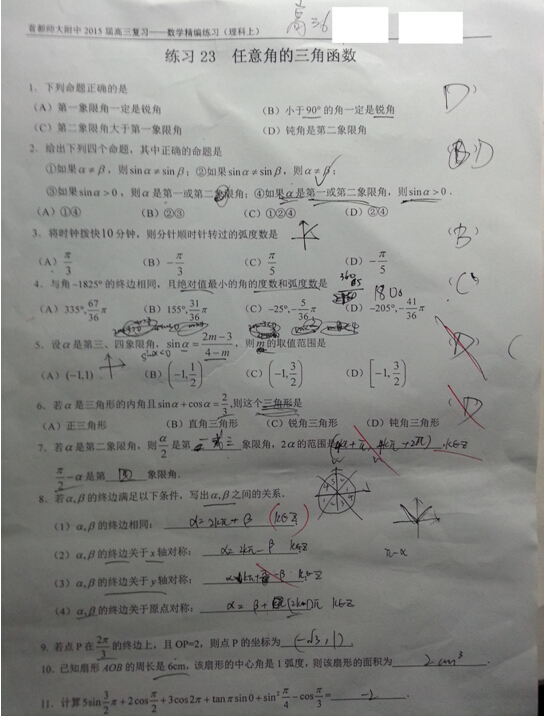 首都师大附中2015届高三复习——数学精编练习(理科上)
高三6
练习23 任意角的三角函数
1. 下列命题正确的是 D
(A) 第一象限角一定是锐角 (B) 小于90°的角一定是锐角
(C) 第二象限角大于第一象限角 (D) 钝角是第二象限角
2. 给出下列四个命题，其中正确的命题是 D
①如果α≠β，则sinα≠sinβ；②如果sinα≠sinβ，则α≠β；
③如果sinα>0，则α是第一或第二象限角；④如果α是第一或第二象限角，则sinα>0．
(A) ①④ (B) ②③ (C) ①②④ (D) ②④
3. 将时钟拨快10分钟，则分针顺时针转过的弧度数是 (B)
(A) π/3 (B) -π/3 (C) π/5 (D) -π/5
4. 与角-1825°的终边相同，且绝对值最小的角的度数和弧度数是 (C)
(A) 335°, 67/36 π (B) 155°, 31/36 π (C) -25°, -5/36 π (D) -205°, -41/36 π
5. 设α是第三、四象限角，sinα = (2m-3)/(4-m)，则m的取值范围是 (D) C
sinα<0
(A) (-1,1) (B) (-1, 1/2) (C) (-1, 3/2) (D) [-1, 3/2)
6. 若α是三角形的内角且sinα+cosα=2/3,则这个三角形是 (D)
(A) 正三角形 (B) 直角三角形 (C) 锐角三角形 (D) 钝角三角形
7. 若α是第二象限角，则α/2是第 一或三 象限角，2α的范围是 (4kπ+π, 4kπ+2π) k∈Z
π/2-α是第 象限角．
8. 若α,β的终边满足以下条件，写出α,β之间的关系．
(1) α,β的终边相同： α=2kπ+β (k∈Z)
(2) α,β的终边关于x轴对称： α=2kπ-β k∈Z
π-α
(3) α,β的终边关于y轴对称： -β k∈Z
(4) α,β的终边关于原点对称： α=β+(2k+1)π k∈Z
9. 若点P在2π/3的终边上，且OP=2，则点P的坐标为 (-√3,1)．
10. 已知扇形AOB的周长是6cm，该扇形的中心角是1弧度，则该扇形的面积为 2cm³．
11. 计算5sin 3/2 π+2cos π/2+3cos2π+tanπsin0+sin² π/4-cos π/3= -2．